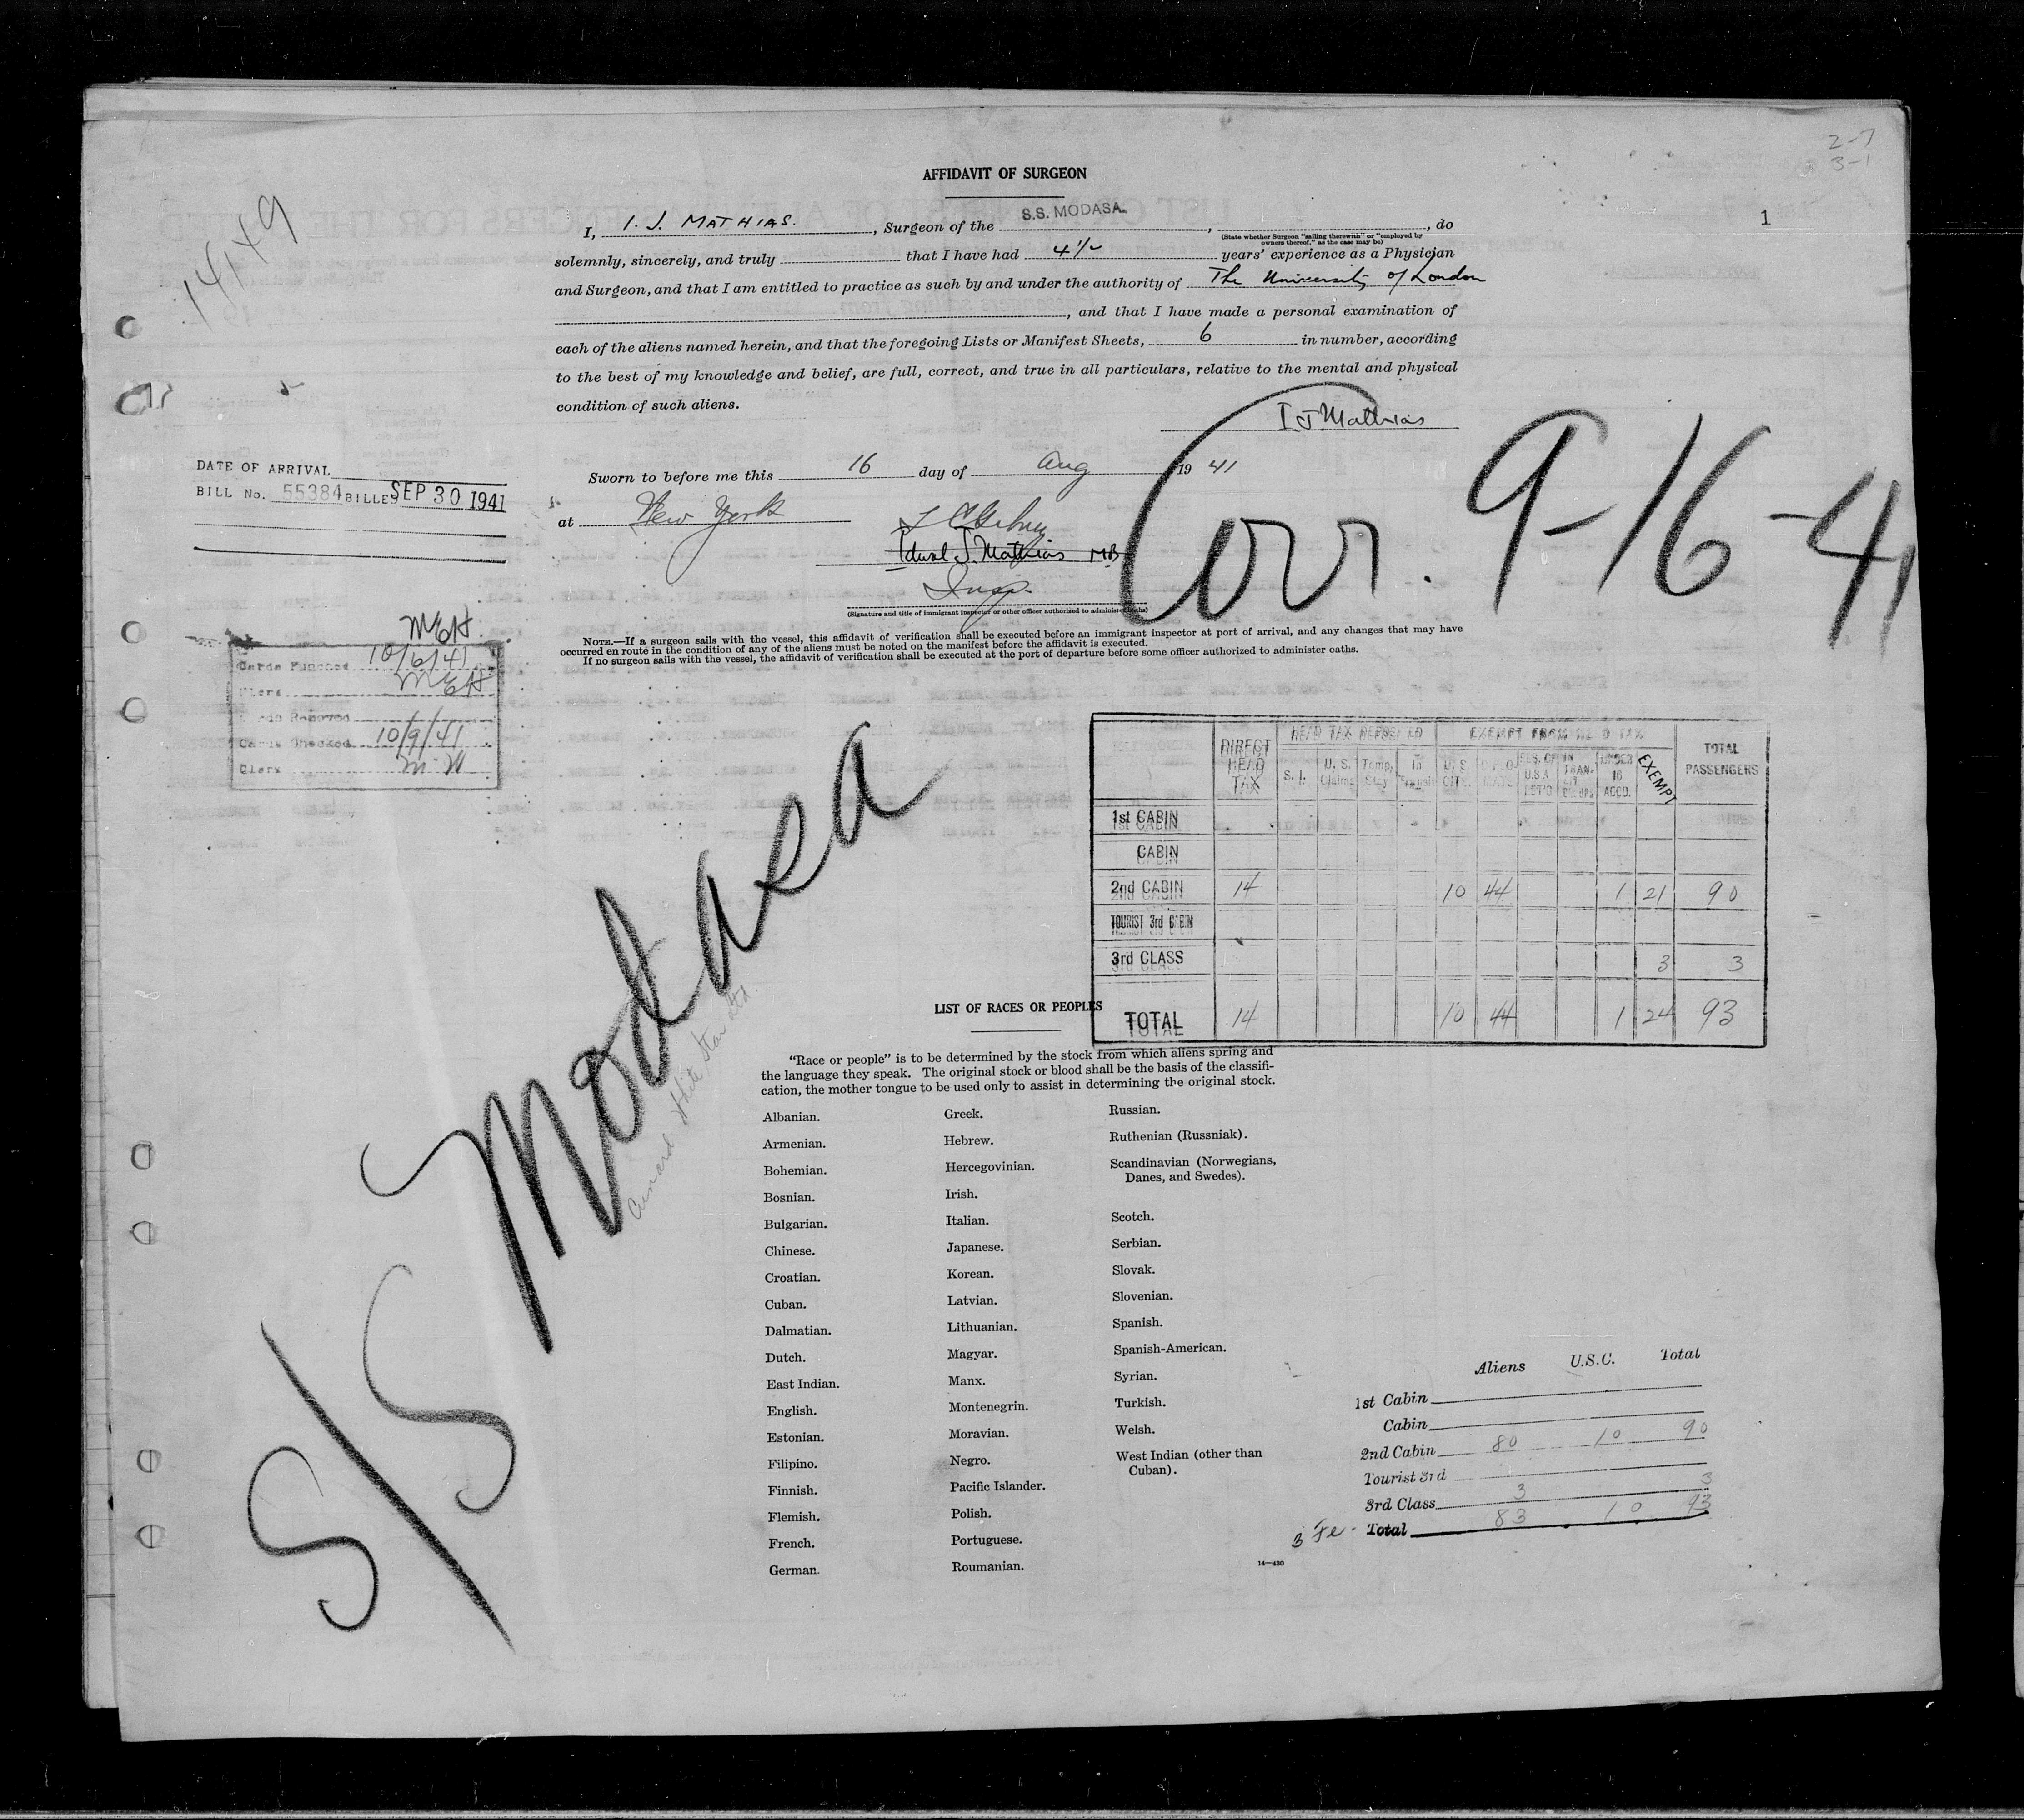 2-7
3-1
1
14149
AFFIDAVIT OF SURGEON
I, I. J. MATHIAS., Surgeon of the S.S. MODASA., , do
(State whether Surgeon "sailing therewith" or "employed by
owners thereof," as the case may be)
solemnly, sincerely, and truly that I have had 4½ years' experience as a Physician
and Surgeon, and that I am entitled to practice as such by and under the authority of The University of London
, and that I have made a personal examination of
each of the aliens named herein, and that the foregoing Lists or Manifest Sheets, 6 in number, according
to the best of my knowledge and belief, are full, correct, and true in all particulars, relative to the mental and physical
condition of such aliens.
I J Mathias
Sworn to before me this 16 day of Aug 19 41
at New York
Idwal J. Mathias MB
Insp.
(Signature and title of immigrant inspector or other officer authorized to administer oaths)
Corr. 9-16-41
DATE OF ARRIVAL
BILL No. 55384 BILLED SEP 30 1941
NOTE.—If a surgeon sails with the vessel, this affidavit of verification shall be executed before an immigrant inspector at port of arrival, and any changes that may have
occurred en route in the condition of any of the aliens must be noted on the manifest before the affidavit is executed.
If no surgeon sails with the vessel, the affidavit of verification shall be executed at the port of departure before some officer authorized to administer oaths.
MEH.
Cards Punched 10/6/41
Clerk MEH
Cards Checked 10/9/41
Clerk
DIRECT HEAD TAX
HEAD TAX DEPOSITED
EXEMPT FROM HEAD TAX
TOTAL PASSENGERS
S. I. U. S. Claims Temp. Stay In Transit U. S. CITZ. UNDER 16 ACCD. EXEMPT
1st CABIN
CABIN
2nd CABIN 14 10 44 1 21 90
TOURIST 3rd CABIN
3rd CLASS 3 3
TOTAL 14 10 44 1 24 93
S/S Modasa
Cunard White Star Ltd.
LIST OF RACES OR PEOPLES
"Race or people" is to be determined by the stock from which aliens spring and
the language they speak. The original stock or blood shall be the basis of the classifi-
cation, the mother tongue to be used only to assist in determining the original stock.
Albanian.
Armenian.
Bohemian.
Bosnian.
Bulgarian.
Chinese.
Croatian.
Cuban.
Dalmatian.
Dutch.
East Indian.
English.
Estonian.
Filipino.
Finnish.
Flemish.
French.
German.
Greek.
Hebrew.
Hercegovinian.
Irish.
Italian.
Japanese.
Korean.
Latvian.
Lithuanian.
Magyar.
Manx.
Montenegrin.
Moravian.
Negro.
Pacific Islander.
Polish.
Portuguese.
Roumanian.
Russian.
Ruthenian (Russniak).
Scandinavian (Norwegians,
Danes, and Swedes).
Scotch.
Serbian.
Slovak.
Slovenian.
Spanish.
Spanish-American.
Syrian.
Turkish.
Welsh.
West Indian (other than
Cuban).
14—430
Aliens U.S.C. Total
1st Cabin
Cabin
2nd Cabin 80 10 90
Tourist 3rd
3rd Class 3 3
Total 83 10 93